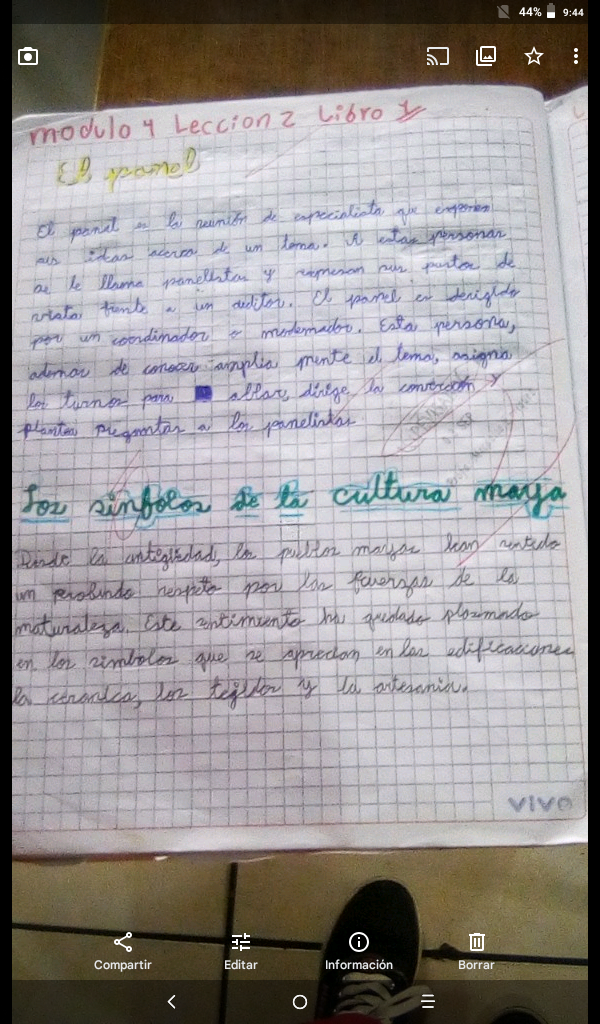 44% 9:44
modulo 4 Leccion 2 Libro 1
El panel
El panel es la reunión de especialista que exponen
sus ideas acerca de un tema. A estas personas
se le llama panelistas y expresan sus puntos de
vista frente a un auditor. El panel es derigido
por un coordinador o modemador. Esta persona,
ademas de conocer amplia mente el tema, asigna
los turnos para ablar, dirige la y
plantea preguntas a los panelistas
Los simbolos de la cultura maya
Desde la antigüedad, los pueblos mayas han sentido
un respeto por las fuerzas de la
naturaleza. Este sentimiento ha quedado plasmado
en los simbolos que se aprecian en las edificaciones
la ceramica, los tejidos y la artesania.
vivo
Compartir Editar Información Borrar